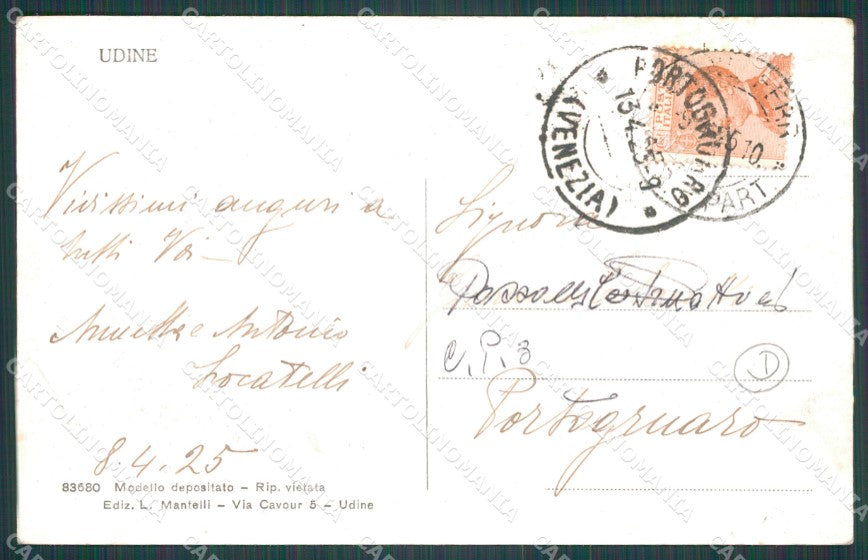 UDINE
Vivissimi auguri a
tutti Voi -
Annetta e Antonio
Locatelli
8.4.25
83680 Modello depositato - Rip. vietata
Ediz. L. Mantelli - Via Cavour 5 - Udine
PORTOGRUARO
13.4.25-9
(VENEZIA)
PART.
Signora
C.P.3
D
Portogruaro
CARTOLINOMANIA